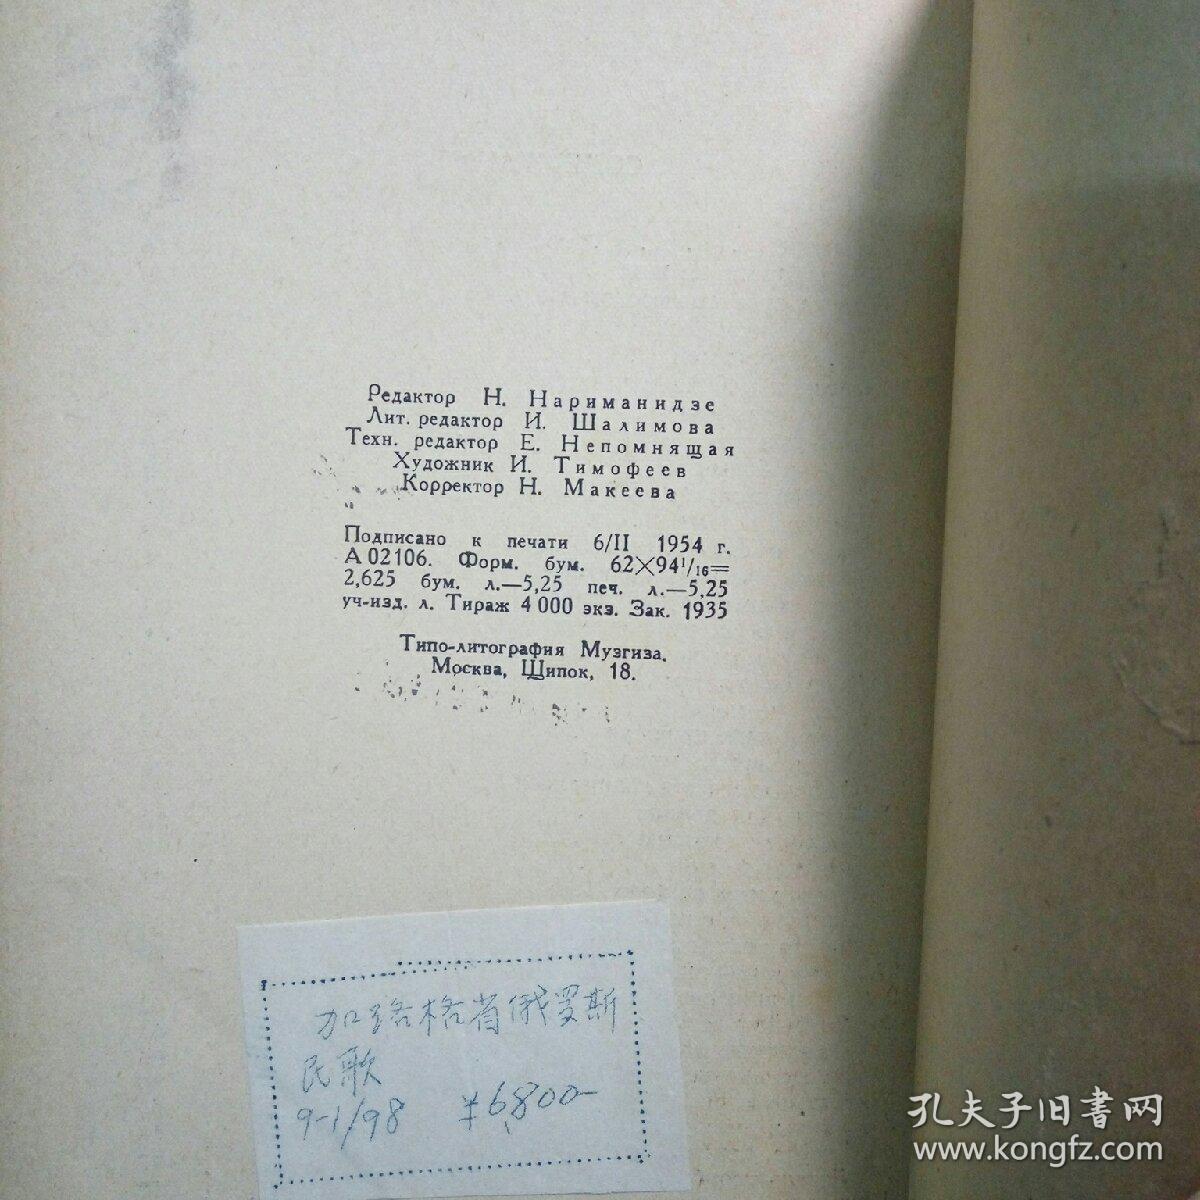 Редактор Н. Нариманидзе
Лит. редактор И. Шалимова
Техн. редактор Е. Непомнящая
Художник И. Тимофеев
Корректор Н. Макеева
Подписано к печати 6/II 1954 г.
А 02106. Форм. бум. 62×94¹/₁₆=
2,625 бум. л.—5,25 печ. л.—5,25
уч-изд. л. Тираж 4 000 экз. Зак. 1935
Типо-литография Музгиза.
Москва, Щипок, 18.
加路格省俄罗斯
民歌
9-1/98 ¥6,800-
孔夫子旧书网
www.kongfz.com